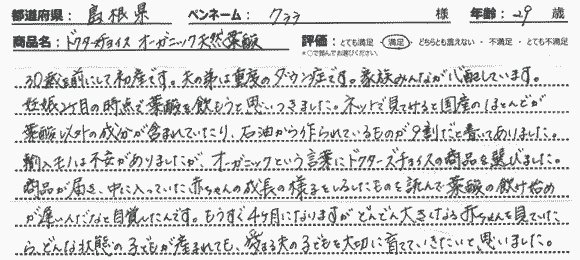 都道府県： 島根県 ペンネーム： クララ 様 年齢： 29 歳
商品名： ドクターズチョイス オーガニック天然葉酸 評価： とても満足 ・ 満足 ・ どちらとも言えない ・ 不満足 ・ とても不満足
*○で囲んでお選びください。
30歳を前にして初産です。夫の弟は重度のダウン症です。家族みんなが心配しています。
妊娠2ヶ月の時点で葉酸を飲もうと思いつきました。ネットで見てけると国産のほとんどが
葉酸以外の成分が含まれていたり、石油から作られているものが9割だと書いてありました。
輸入モノは不安がありましたが、オーガニックという言葉にドクターズチョイスの商品を選びました。
商品が届き、中に入っていた赤ちゃんの成長の様子をしるしたものを読んで葉酸の飲み始め
が遅いんだなと自覚したんです。もうすぐ4ヶ月になりますがどんどん大きくなる赤ちゃんを見ていた
ら、どんな状態の子どもが産まれても、愛する夫の子どもを大切に育てていきたいと思いました。